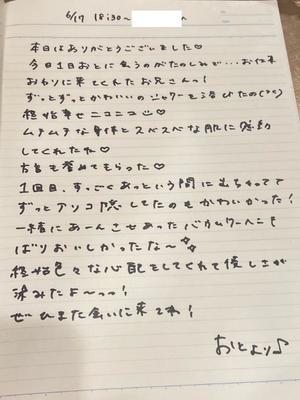 6/17 18:30〜
本日はありがとうございました♡
今日1日おとに会うのがたのしみで…お仕事
おわりに来てくれたお兄さんっ!
ずっとずっとかわいいのシャワーを浴びたの
終始幸せニコニコ☺
ムチムチな身体とスベスベな肌に感動
してくれたね♡
方言も褒めてもらった♡
1回目、すっごくあっという間に
ずっとアソコ隠してたのもかわいかった!
一緒にあーんさせあったバウムクーヘンも
ばりおいしかったな〜✧
終始色々な心配をしてくれて優しさが
染みたよ〜っっ!
ぜひまた会いに来てね!
おとより♪